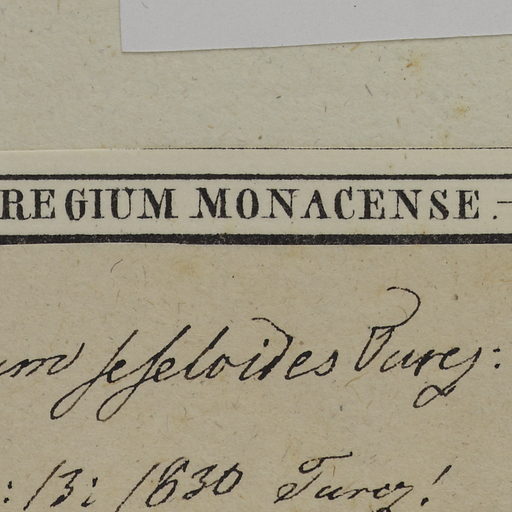 REGIUM MONACENSE. —
um seseloides Turcz:
: 13: 1830 Turcz!